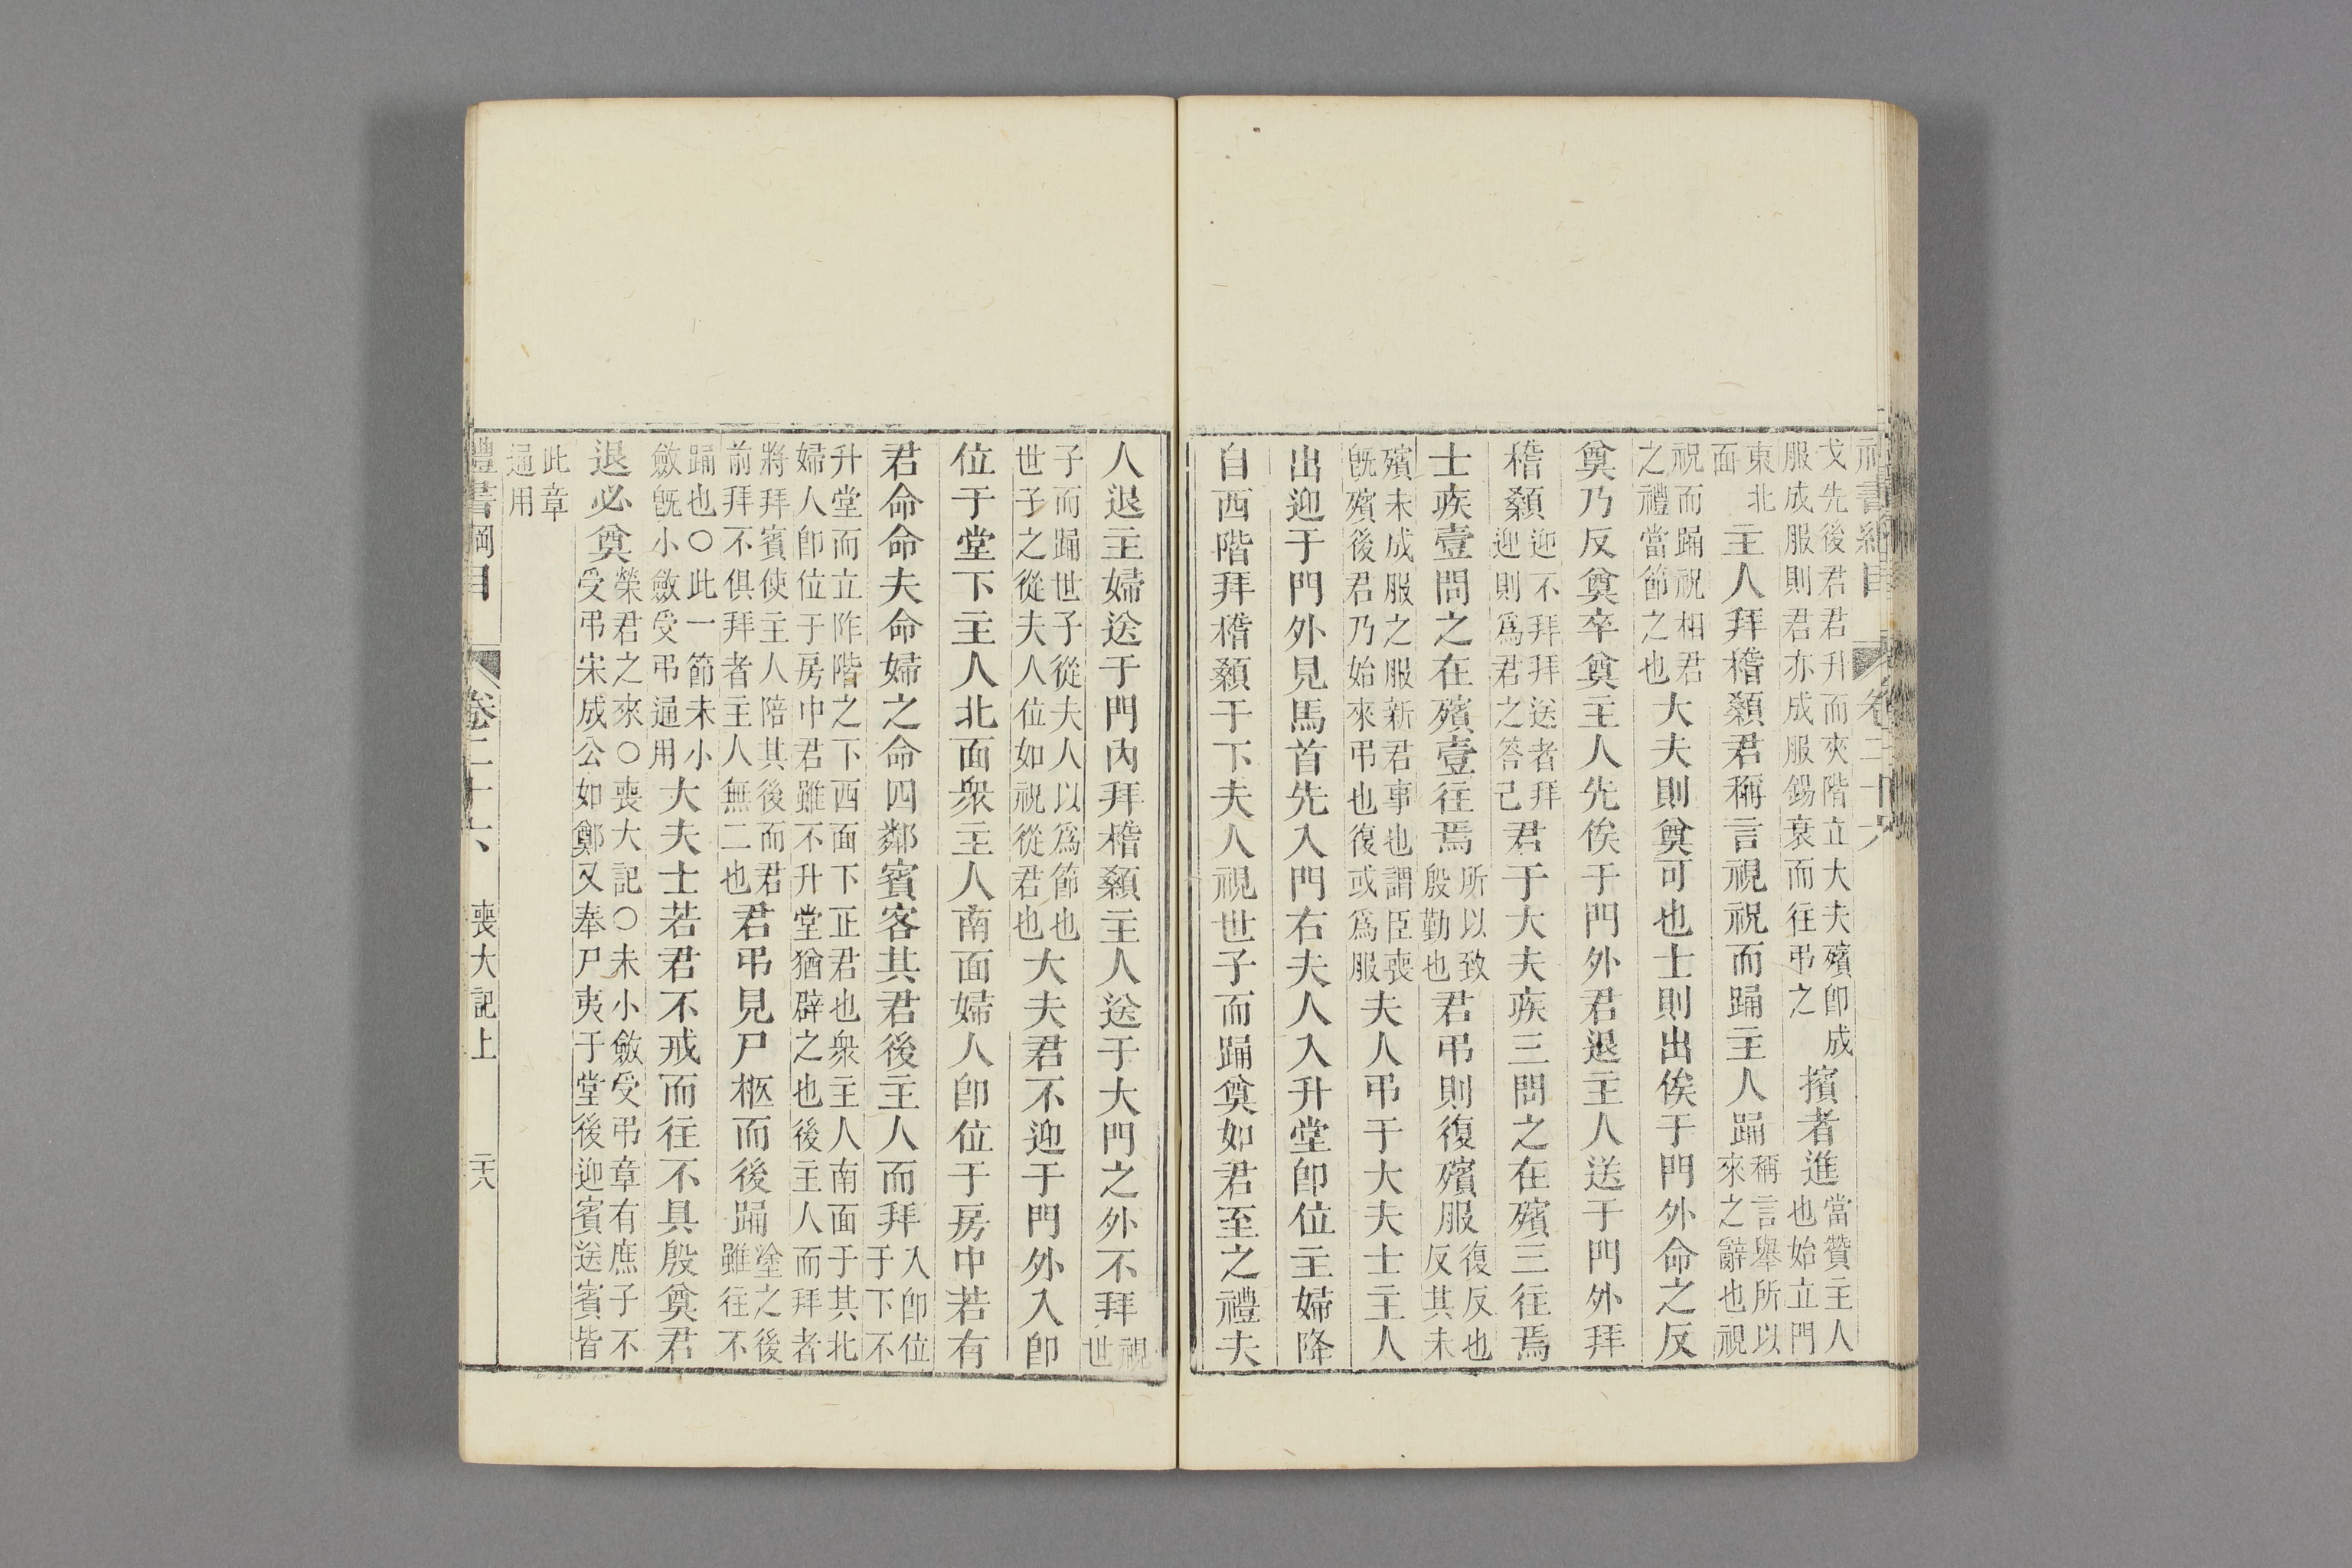 禮書綱目 卷二十六
戈先後君君升而夾階立大夫殯卽成
服成服則君亦成服錫衰而往弔之
擯者進
當贊主人
也始立門
東北
面
主人拜稽顙君稱言視祝而踊主人踊
稱言舉所以
來之辭也視
祝而踊祝相君
之禮當節之也
大夫則奠可也士則出俟于門外命之反
奠乃反奠卒奠主人先俟于門外君退主人送于門外拜
稽顙
迎不拜拜送者拜
迎則爲君之答己
君于大夫疾三問之在殯三往焉
士疾壹問之在殯壹往焉
所以致
殷勤也
君弔則復殯服
復反也
反其未
殯未成服之服新君事也謂臣喪
旣殯後君乃始來弔也復或爲服
夫人弔于大夫士主人
出迎于門外見馬首先入門右夫人入升堂卽位主婦降
自西階拜稽顙于下夫人視世子而踊奠如君至之禮夫
人退主婦送于門內拜稽顙主人送于大門之外不拜
視
世
子而踊世子從夫人以爲節也
世子之從夫人位如祝從君也
大夫君不迎于門外入卽
位于堂下主人北面衆主人南面婦人卽位于房中若有
君命命夫命婦之命四鄰賓客其君後主人而拜
入卽位
于下不
升堂而立阼階之下西面下正君也衆主人南面于其北
婦人卽位于房中君雖不升堂猶辟之也後主人而拜者
將拜賓使主人陪其後而君
前拜不俱拜者主人無二也
君弔見尸柩而後踊
塗之後
雖往不
踊也○此一節未小
斂旣小斂受弔通用
大夫士若君不戒而往不具殷奠君
退必奠
榮君之來○喪大記○未小斂受弔章有庶子不
受弔宋成公如鄭又奉尸夷于堂後迎賓送賓皆
此章
通用
禮書綱目 卷二十六 喪大記上 二十八